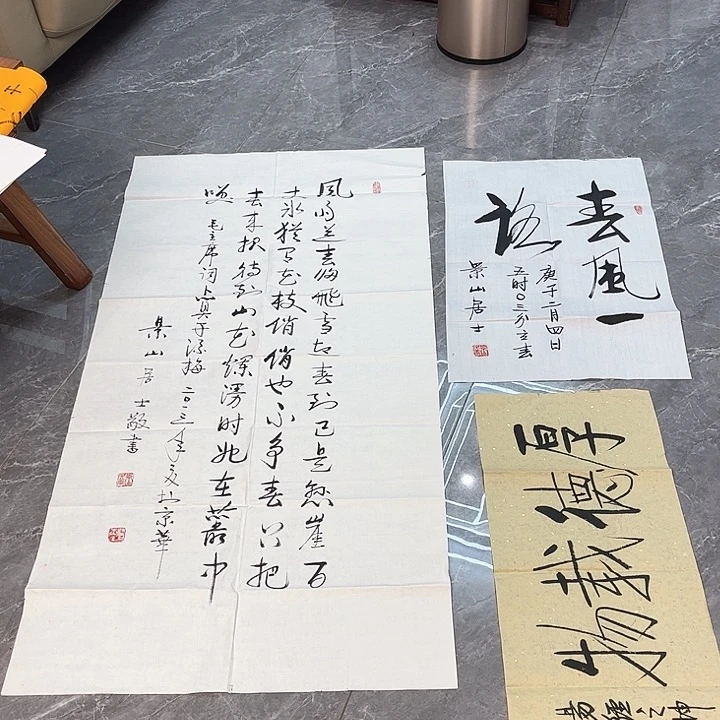 風雨送春归飛雪迎春到已是悬崖百
丈冰犹有花枝俏俏也不争春只把
春来报待到山花爛漫时她在叢中
笑
毛主席词卜算子咏梅 二〇一三年夏于京華
景山居士敬書
春風一
路
庚子二月四日
五时〇三分立春
景山居士
厚德載物
易經之坤